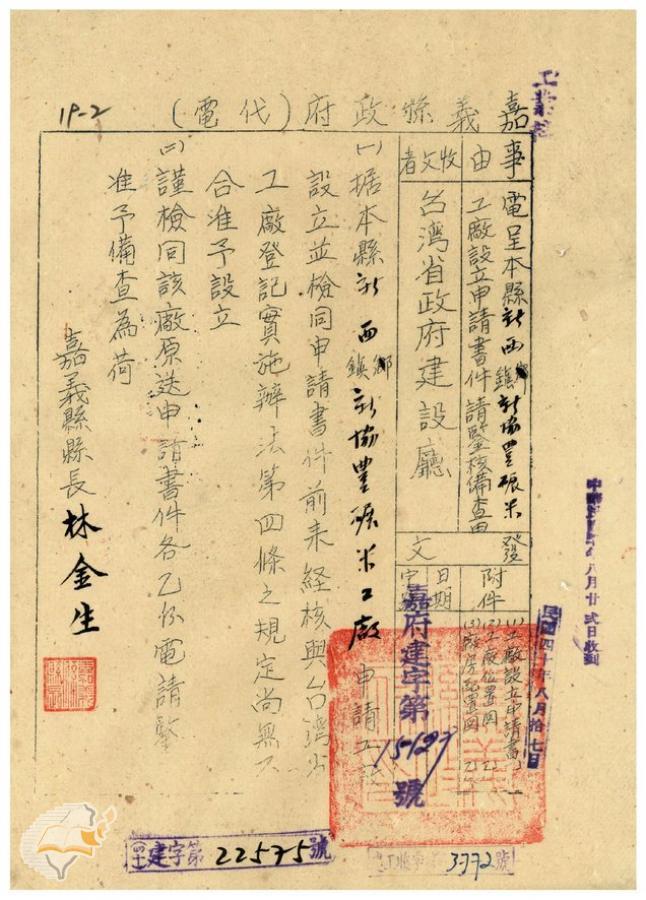 工業
19-2
嘉義縣政府(代電)
事由
電呈本縣新西鄉鎮新協豐碾米
工廠設立申請書件請鑒核備查由
收文者
台灣省政府建設廳
發文
附件
(1)工廠設立申請書
(2)工廠位置圖
(3)廠房配置圖
日期
民國四十年八月拾七日
字號
嘉府建字第15127號
八月廿貳日收到
(一)据本縣新西鄉鎮新協豐碾米工廠申請工
設立並檢同申請書件前来経核與台湾省
工廠登記實施辦法第四條之規定尚無不
合准予設立
(二)謹檢同該廠原送申請書件各乙份電請鑒
准予備查為荷
嘉義縣縣長林金生
建字第22575號
3772號